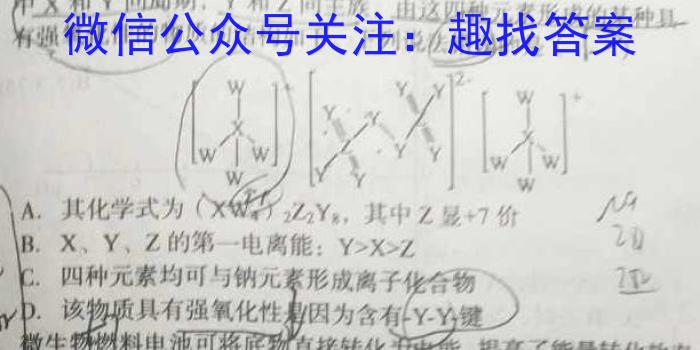 中 X 和 Y 同周期，Y 和 Z 同主族，由这四种元素形成的某种具
有强
微信公众号关注：趣找答案
W + Y Y Y 2- W +
X Y Z Y X
W W Y Y Y W W
W W
A. 其化学式为（XW₄）₂Z₂Y₈，其中 Z 显+7 价
B. X、Y、Z 的第一电离能：Y>X>Z
C. 四种元素均可与钠元素形成离子化合物
D. 该物质具有强氧化性是因为含有-Y-Y-键
微生物燃料电池可将底物直接转化为电能，提高了能量转化效率